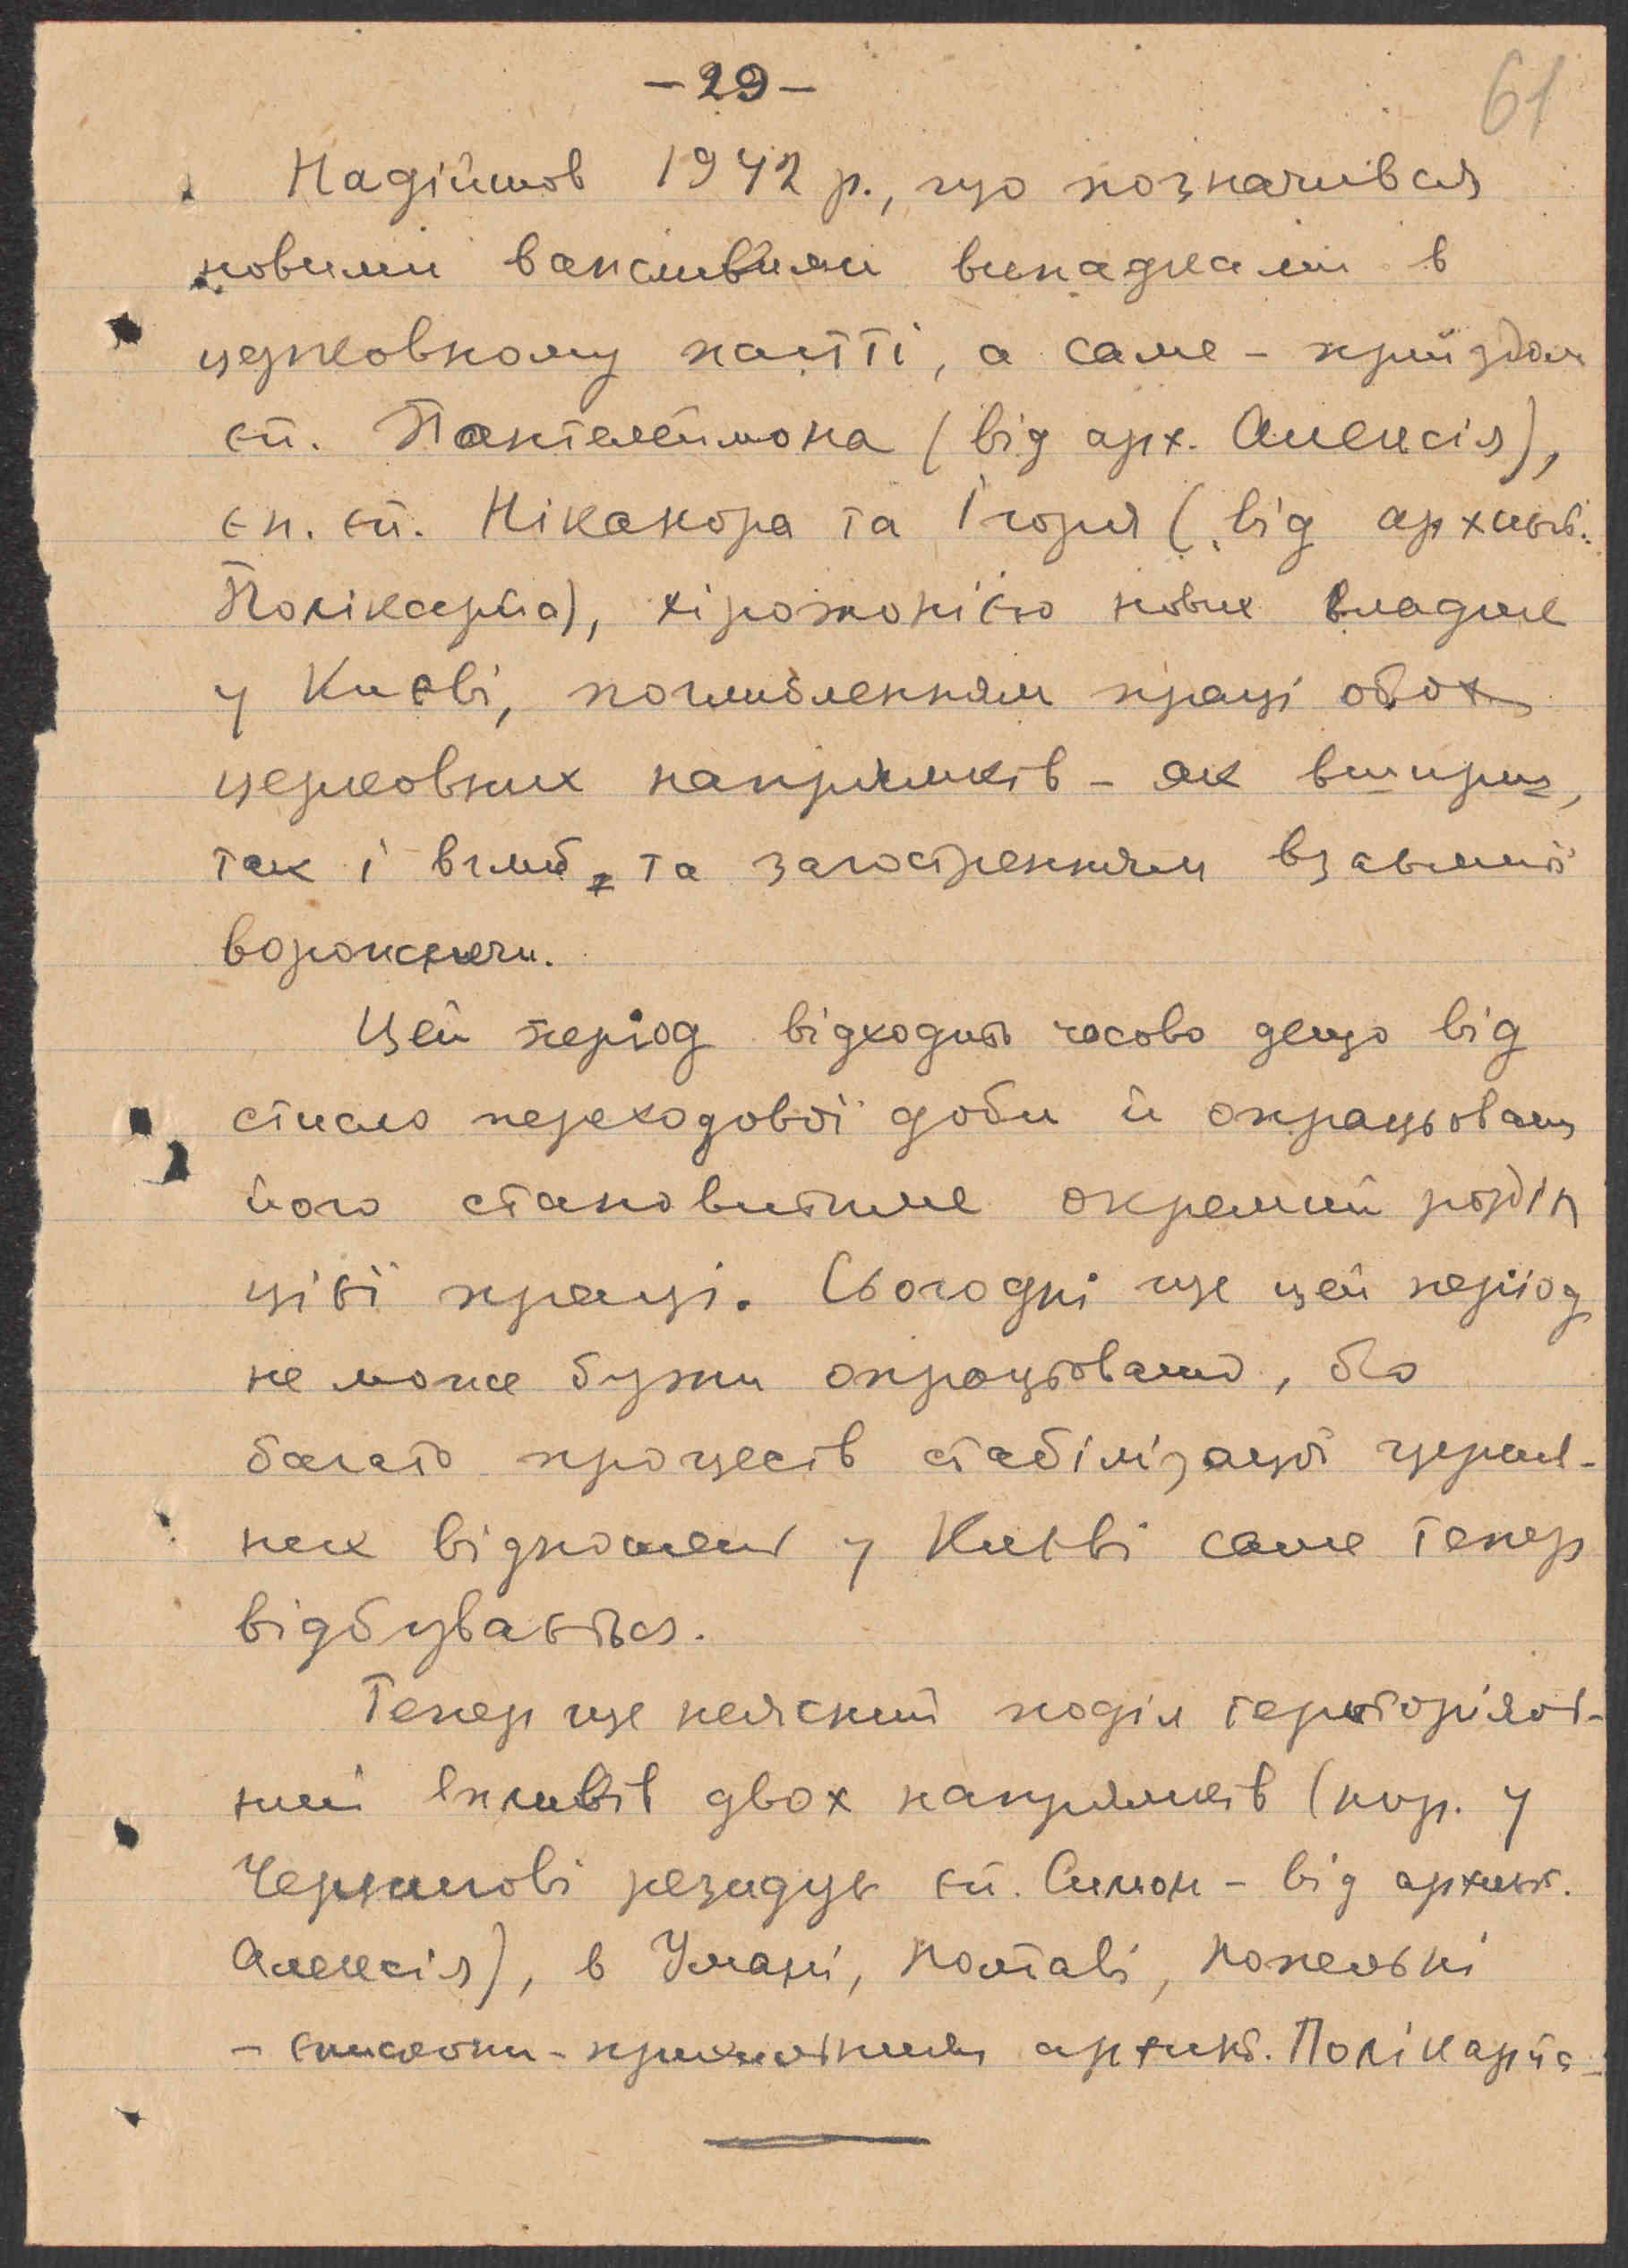 -29-
61
Надійшов 1942 р., що позначився
новими важливими випадками в
церковному життi, а саме - приїздом
єп. Пантелеймона (від арх. Алексія),
єп. єп. Ніканора та Ігоря (від архиєп.
Полікарпа), хіротонією нових владик
у Києві, поглибленням праці обох
церковних напрямків - як вшир,
так і вглиб, та загостренням взаємної
ворожнечи.
Цей період відходить часово дещо від
стисло переходової доби й опрацьован.
його становитиме окремий розділ
цієї праці. Сьогодні ще цей період
не може бути опрацьований, бо
багато процесів стабілізації церков-
них відношень у Києві саме тепер
відбувається.
Тепер ще неясний поділ територіяль-
ний впливів двох напрямків (нпр. у
Чернигові резидує єп. Симон - від архиєп.
Алексія), в Умані, Полтаві, Попельні
- єпископи - прихильники архиєп. Полікарпа.